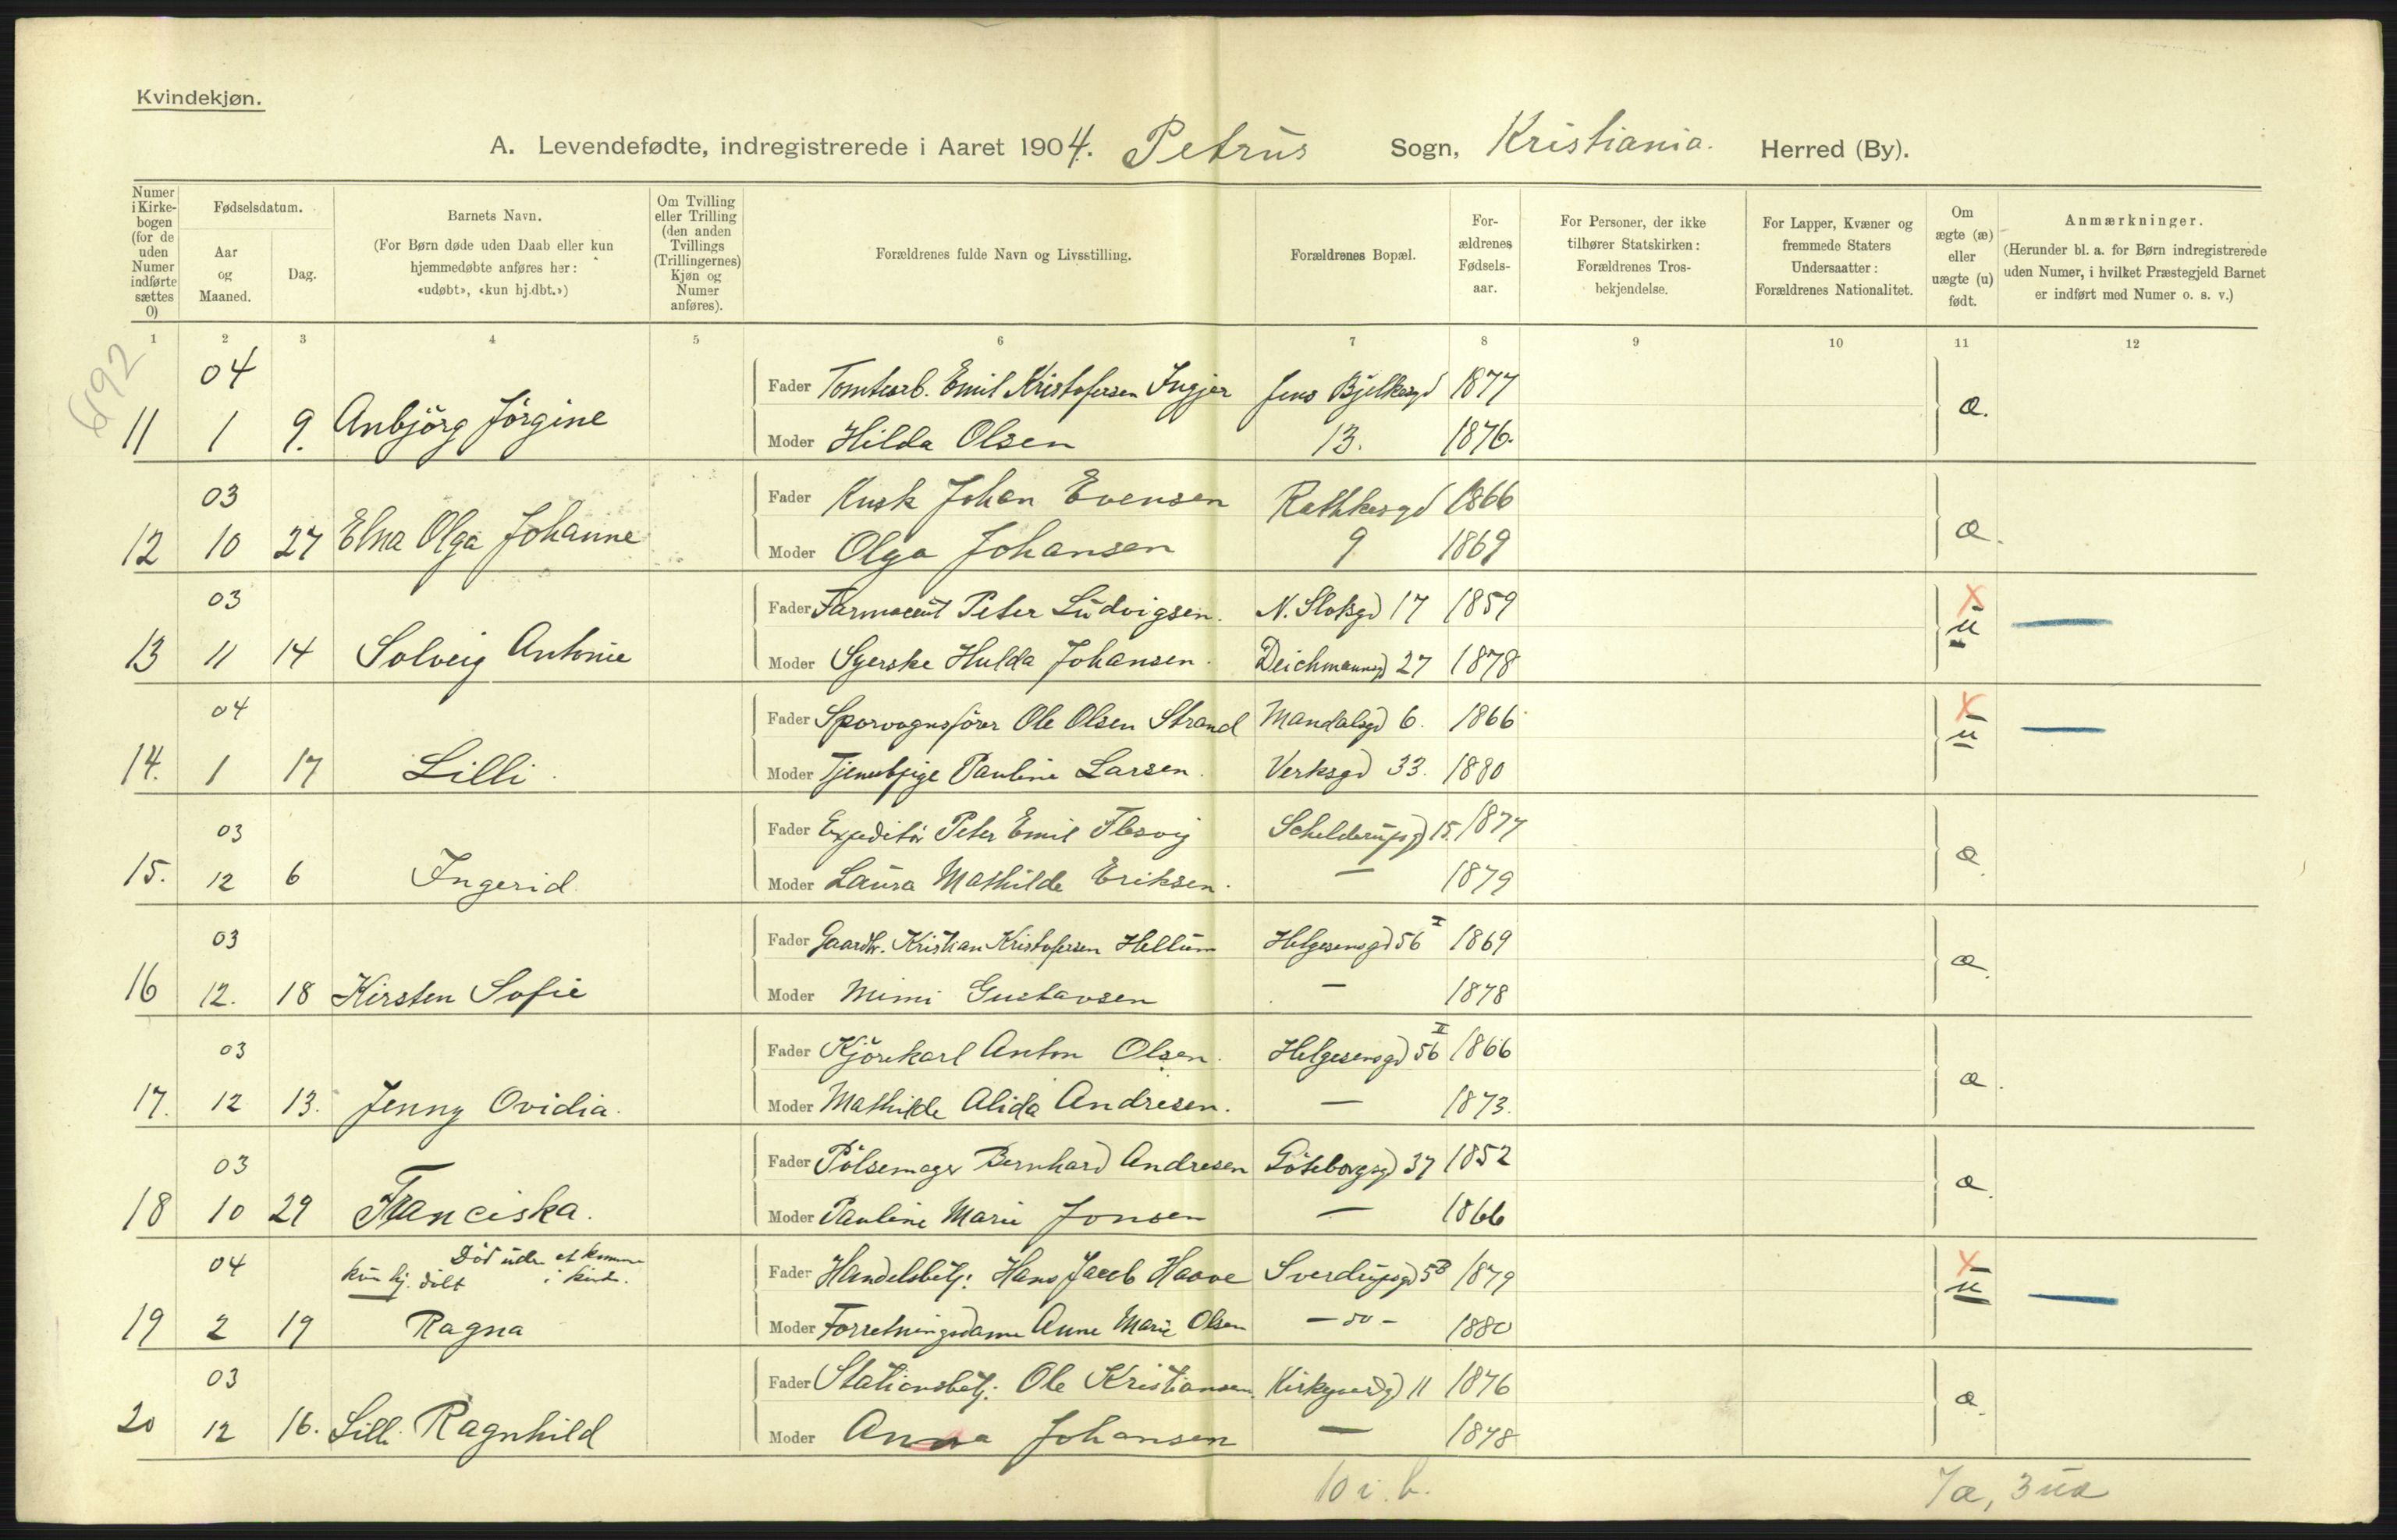 Kvindekjøn.
A. Levendefødte, indregistrerede i Aaret 1904. Petrus Sogn, Kristiania. Herred (By).
Numer i Kirke-bogen (for de uden Numer indførte sættes 0)
Fødselsdatum.
Aar og Maaned.
Dag.
Barnets Navn.
(For Børn døde uden Daab eller kun hjemmedøbte anføres her: «udøbt», «kun hj.dbt.»)
Om Tvilling eller Trilling (den anden Tvillings (Trillingernes) Kjøn og Numer anføres).
Forældrenes fulde Navn og Livsstilling.
Forældrenes Bopæl.
For-ældrenes Fødsels-aar.
For Personer, der ikke tilhører Statskirken: Forældrenes Tros-bekjendelse.
For Lapper, Kvæner og fremmede Staters Undersaatter: Forældrenes Nationalitet.
Om ægte (æ) eller uægte (u) født.
Anmærkninger.
(Herunder bl. a. for Børn indregistrerede uden Numer, i hvilket Præstegjeld Barnet er indført med Numer o. s. v.)
1 2 3 4 5 6 7 8 9 10 11 12
6192
04 Fader Tomtearb. Emil Kristofersen Ingjer Jens Bjelkesgd 1877 æ.
11 1 9. Anbjörg Jörgine Moder Hilda Olsen 13. 1876.
03 Fader Kusk Johan Evensen Rathkesgd 1866 æ.
12 10 27 Elna Olga Johanne Moder Olga Johansen 9 1869
03 Fader Farmaceut Peter Ludvigsen. N. Slotsgd 17 1859 x u —
13 11 14 Solveig Antonie Moder Syerske Hulda Johansen. Deichmannsgd 27 1878
04 Fader Sporvognsförer Ole Olsen Strand Mandalsgd 6. 1866 x u —
14. 1 17 Lilli. Moder Tjenestpige Pauline Larsen. Verksgd 33. 1880
03 Fader Expeditör Peter Emil Flesvig Schelderupsgd 15. 1877 æ.
15. 12 6 Ingerid Moder Laura Mathilde Eriksen. — 1879
03 Fader Gaardbr. Kristian Kristofersen Hellum Helgesensgd 56 I 1869 æ.
16 12. 18 Kirsten Sofie Moder Mimi Gustavsen — 1878
03 Fader Kjörekarl Anton Olsen. Helgesensgd 56 II 1866 æ.
17. 12 13. Jenny Ovidia. Moder Mathilde Alida Andresen. — 1873.
03 Fader Pölsemager Bernhard Andresen Göteborgsgd 37 1852 æ.
18 10 29 Franciska. Moder Pauline Marie Jonsen — 1866
04 kun hj. döbt Död uden at komme i kirke. Fader Handelsbetj: Hans Jacob Haave Sverdrupsgd 5B 1879 x u —
19 2 19 Ragna Moder Forretningsdame Anne Marie Olsen — do — 1880
03 Fader Stationsbetj: Ole Kristiansen. Kirkegaardsgd 11 1876 æ.
20 12 16. Lilli Ragnhild Moder Anna Johansen — 1878
10 i. b. 7æ, 3 uæ